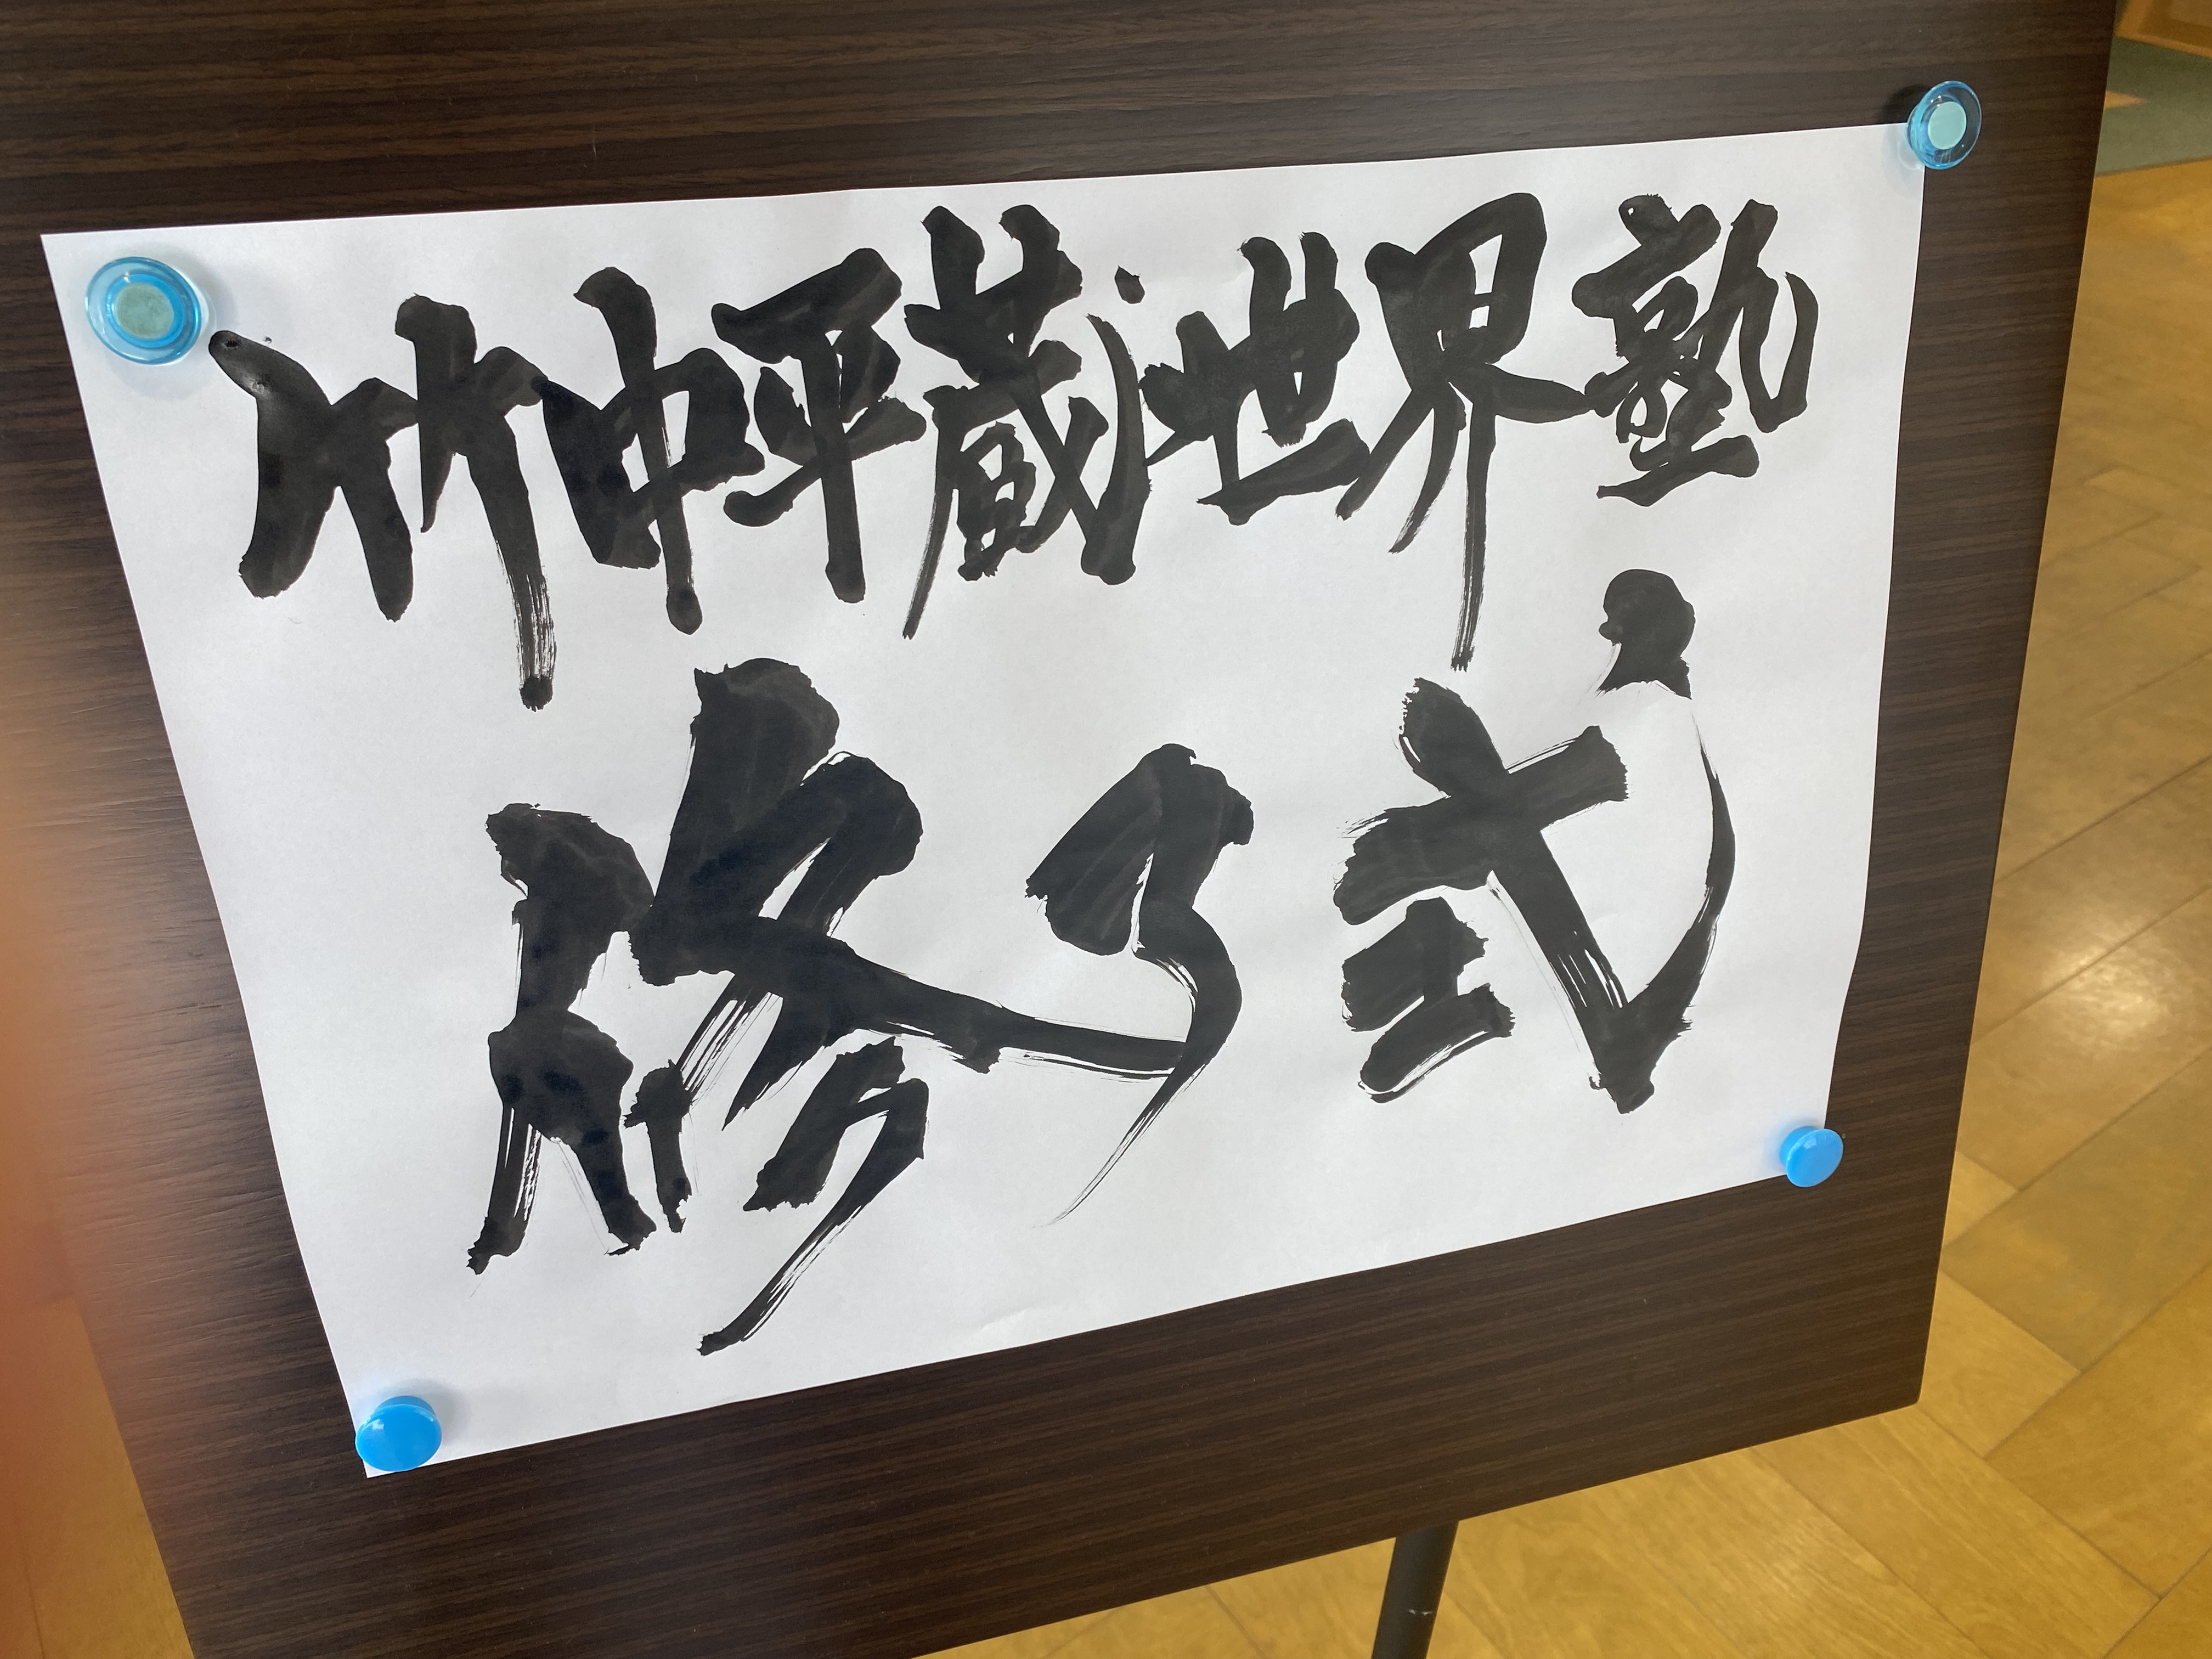 竹中平蔵世界塾
修了式